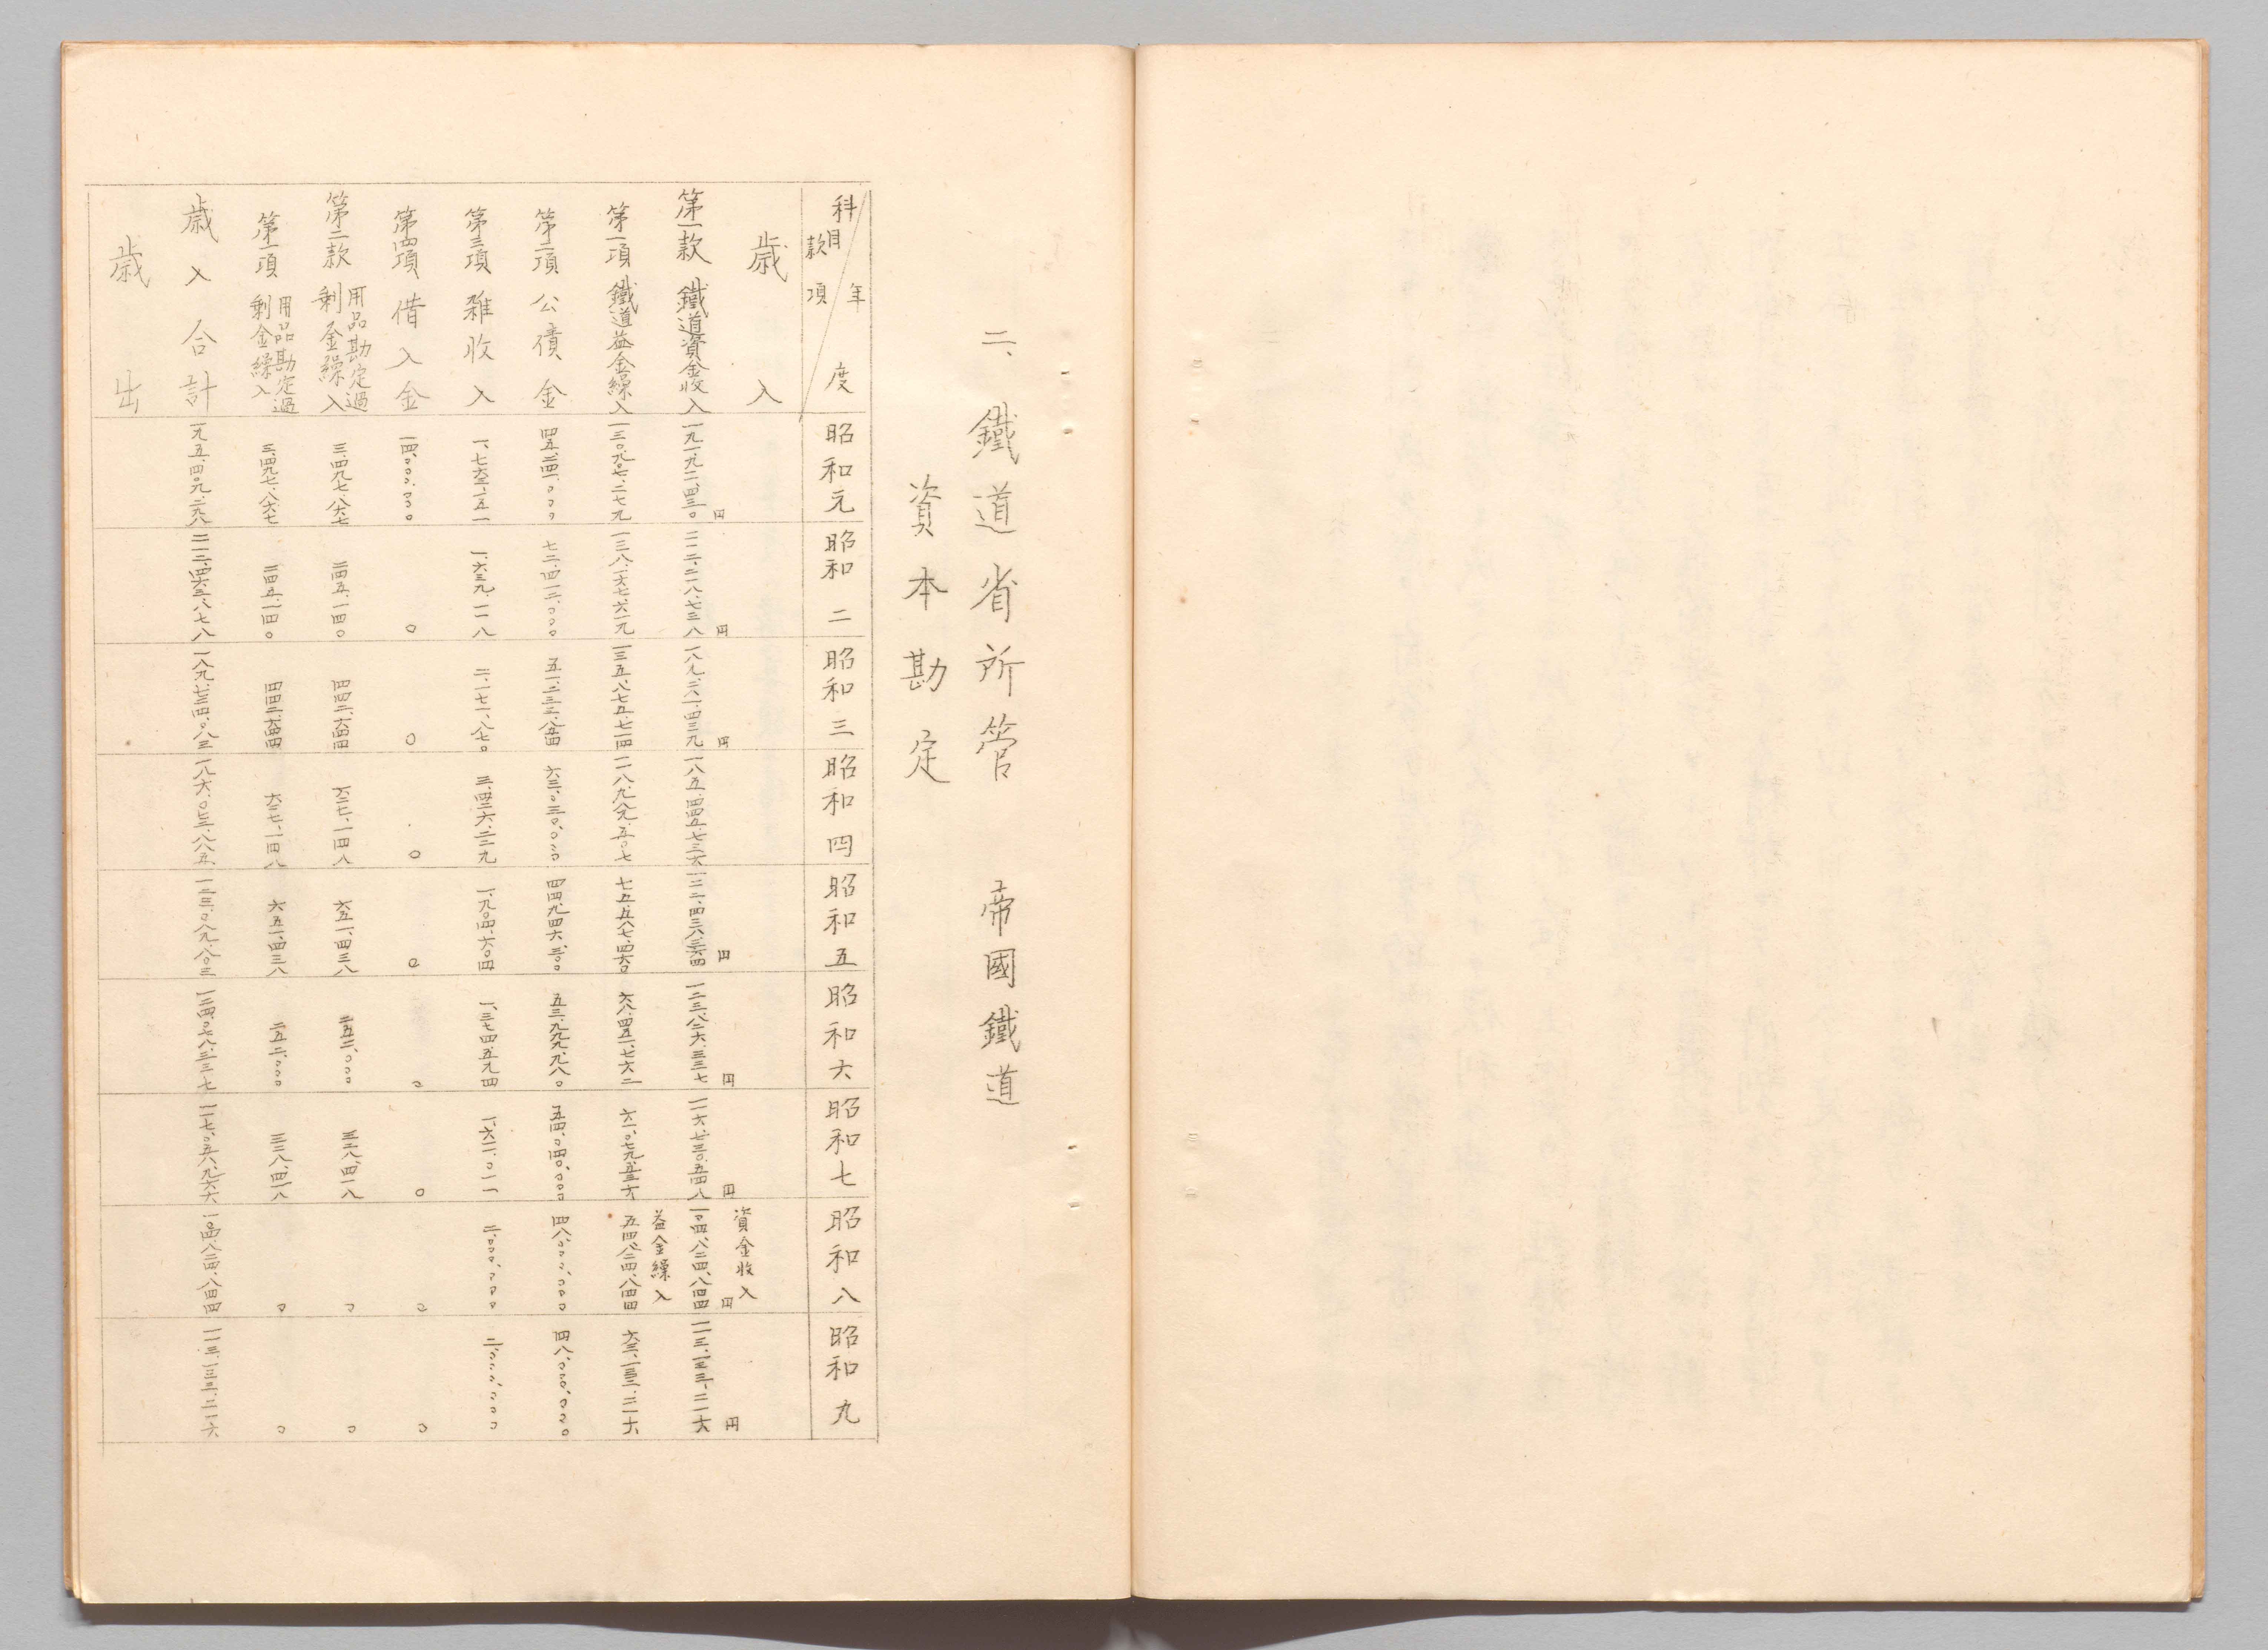 二、鐵道省所管　帝國鐵道
資本勘定
科目　年度　款項　昭和元　昭和二　昭和三　昭和四　昭和五　昭和六　昭和七　昭和八　昭和九
歳入
資金收入
第一款　鐵道資金收入　一九一、九一一、四三〇円　二一二、二一八、七三八円　一八九、二八一、四三九円　一八五、四四五、七三六　一二二、四三八、三六四円　一二三、八二六、三三七円　一一六、七三〇、五四八円　一〇四、八二四、八四四円　一一三、一三三、二一六円
益金繰入
第一項　鐵道益金繰入　一三〇、九〇七、二七九　一三八、一六七、六一九　一三五、八七五、七一四　一一八、九八九、五〇七　七五、五八七、四六〇　六八、四五一、七六二　六一、〇七九、五三六　五四、八二四、八四四　六三、一三三、二一六
第二項　公債金　四五、二四一、〇〇〇　七二、四一二、〇〇〇　五一、二三三、八五四　六三、〇三〇、〇〇〇　四四、九四六、三〇〇　五三、九九九、九八〇　五四、〇四〇、〇〇〇　四八、〇〇〇、〇〇〇　四八、〇〇〇、〇〇〇
第三項　雑收入　一、七六三、一五一　一、六三九、一一八　二、一七一、八七〇　三、四二六、二二九　一、九〇四、六〇四　一、三七四、五九四　一、六一一、〇一一　二、〇〇〇、〇〇〇　二、〇〇〇、〇〇〇
第四項　借入金　一四、〇〇〇、〇〇〇　〇　〇　〇　〇　〇　〇　〇　〇
第二款　用品勘定過剰金繰入　三、四九七、八六七　二四五、一四〇　四四二、六四四　六二七、一四八　六五一、四三八　二五二、〇〇〇　三二八、四一八　〇　〇
第一項　用品勘定過剰金繰入　三、四九七、八六七　二四五、一四〇　四四二、六四四　六二七、一四八　六五一、四三八　二五二、〇〇〇　三二八、四一八　〇　〇
歳入合計　一九五、四〇九、二九八　二一二、四六三、八七八　一八九、七二四、〇八三　一八六、〇七二、八八五　一二三、〇八九、八〇三　一二四、〇七八、三三七　一一七、〇五八、九六六　一〇四、八二四、八四四　一一三、一三三、二一六
歳出